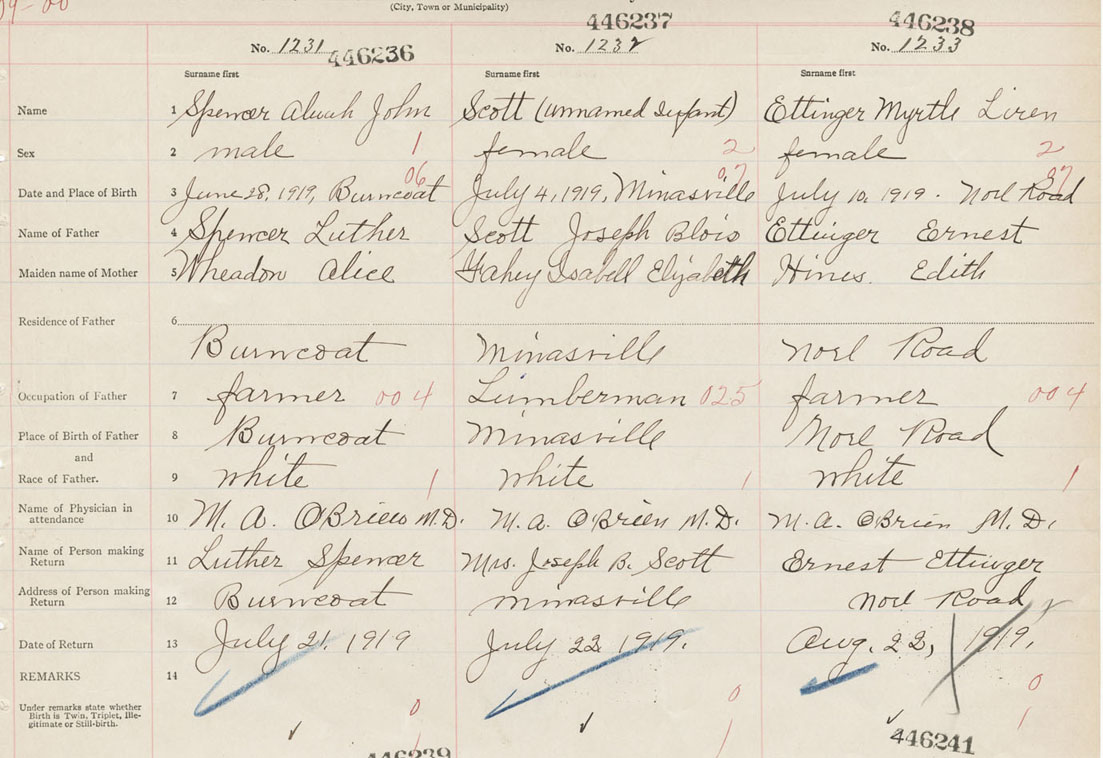 (City, Town or Municipality)
No. 1231 446236
446237 No. 1232
446238 No. 1233
Surname first Surname first Surname first
Name 1 Spencer John Scott (unnamed Infant) Ettinger Myrtle Liren
Sex 2 male 1 female 2 female 2
06 07 07
Date and Place of Birth 3 June 28, 1919, Burncoat July 4, 1919, Minasville July 10, 1919. Noel Road
Name of Father 4 Spencer Luther Scott Joseph Blois Ettinger Ernest
Maiden name of Mother 5 Wheadon Alice Fahey Isabell Elizabeth Hines. Edith
Residence of Father 6
Burncoat Minasville Noel Road
Occupation of Father 7 farmer 004 Lumberman 025 farmer 004
Place of Birth of Father 8 Burncoat Minasville Noel Road
and
Race of Father. 9 white 1 white 1 white 1
Name of Physician in
attendance 10 M. A. O'Brien M.D. M. A. O'Brien M.D. M. A. O'Brien M.D.
Name of Person making
Return 11 Luther Spencer Mrs. Joseph B. Scott Ernest Ettinger
Address of Person making
Return 12 Burncoat Minasville Noel Road
Date of Return 13 July 21, 1919 July 22 1919. Aug. 22, 1919.
REMARKS 14
Under remarks state whether
Birth is Twin, Triplet, Ille-
gitimate or Still-birth.
0 0 0
1 1 1
446239 446241